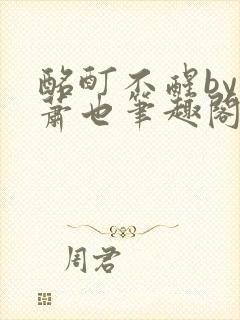 酩酊不醒by
萧也笔趣阁
周君